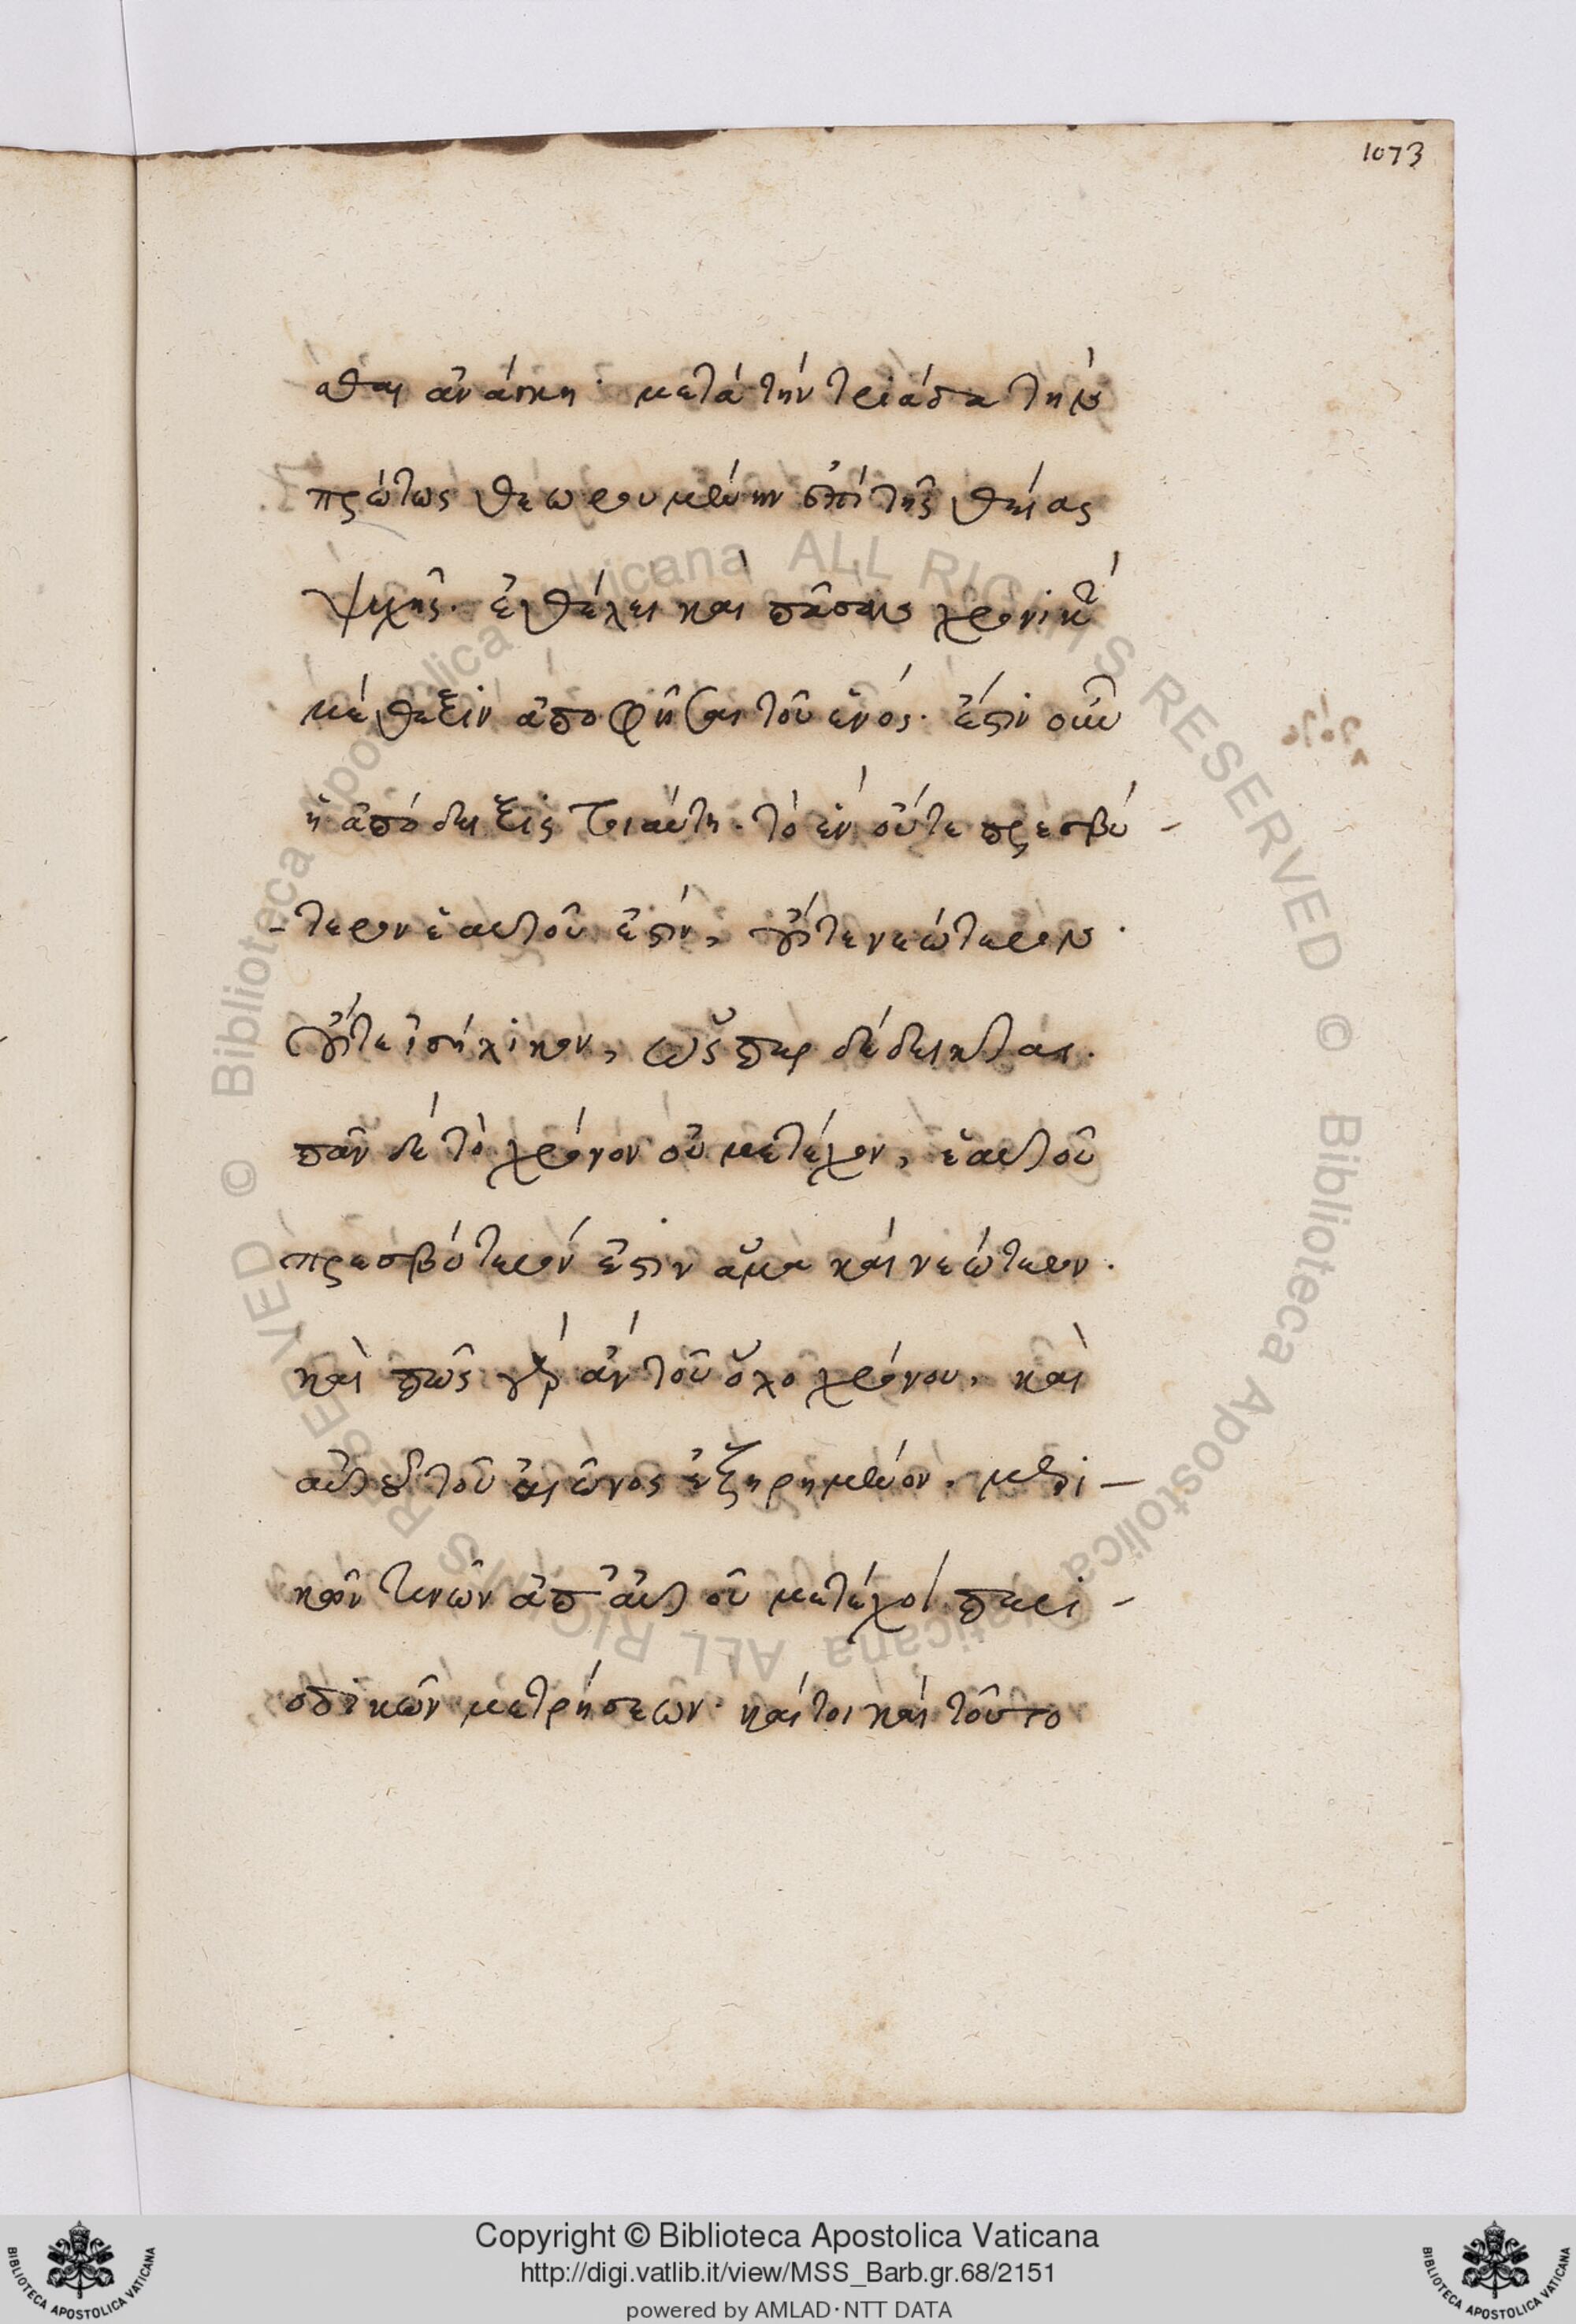 1073
σθαι ἀνάγκη· μετὰ τὴν τριάδα τὴν
πρώτως θεωρουμένην ἐπὶ τῆς θείας
ψυχῆς. ἐθέλει καὶ πᾶσαν χρονικὴν
μέθεξιν ἀποφῆσαι τοῦ ἑνός. ἔστιν οὖν
ἡ ἀπόδειξις τοιαύτη. τὸ ἓν οὔτε πρεσβύ-
-τερον ἑαυτοῦ ἐστιν, οὔτε νεώτερον.
οὔτε ἰσήλικον, ὥσπερ δέδεικται.
πᾶν δὲ τὸ χρόνου μετέχον, ἑαυτοῦ
πρεσβύτερόν ἐστιν ἅμα καὶ νεώτερον.
καὶ πῶς γὰρ ἂν τοῦ ὅλου χρόνου, καὶ
αὐτοῦ τοῦ αἰῶνος ἐξηρημένον. μερι-
κῶν τινῶν ἀπ' αὐτοῦ μετέχοι περι-
οδικῶν μετρήσεων. καίτοι καὶ τοῦτο
Copyright © Biblioteca Apostolica Vaticana
http://digi.vatlib.it/view/MSS_Barb.gr.68/2151
powered by AMLAD·NTT DATA
BIBLIOTECA APOSTOLICA VATICANA
BIBLIOTECA APOSTOLICA VATICANA
© Biblioteca Apostolica Vaticana ALL RIGHTS RESERVED © Biblioteca Apostolica Vaticana ALL RIGHTS RESERVED